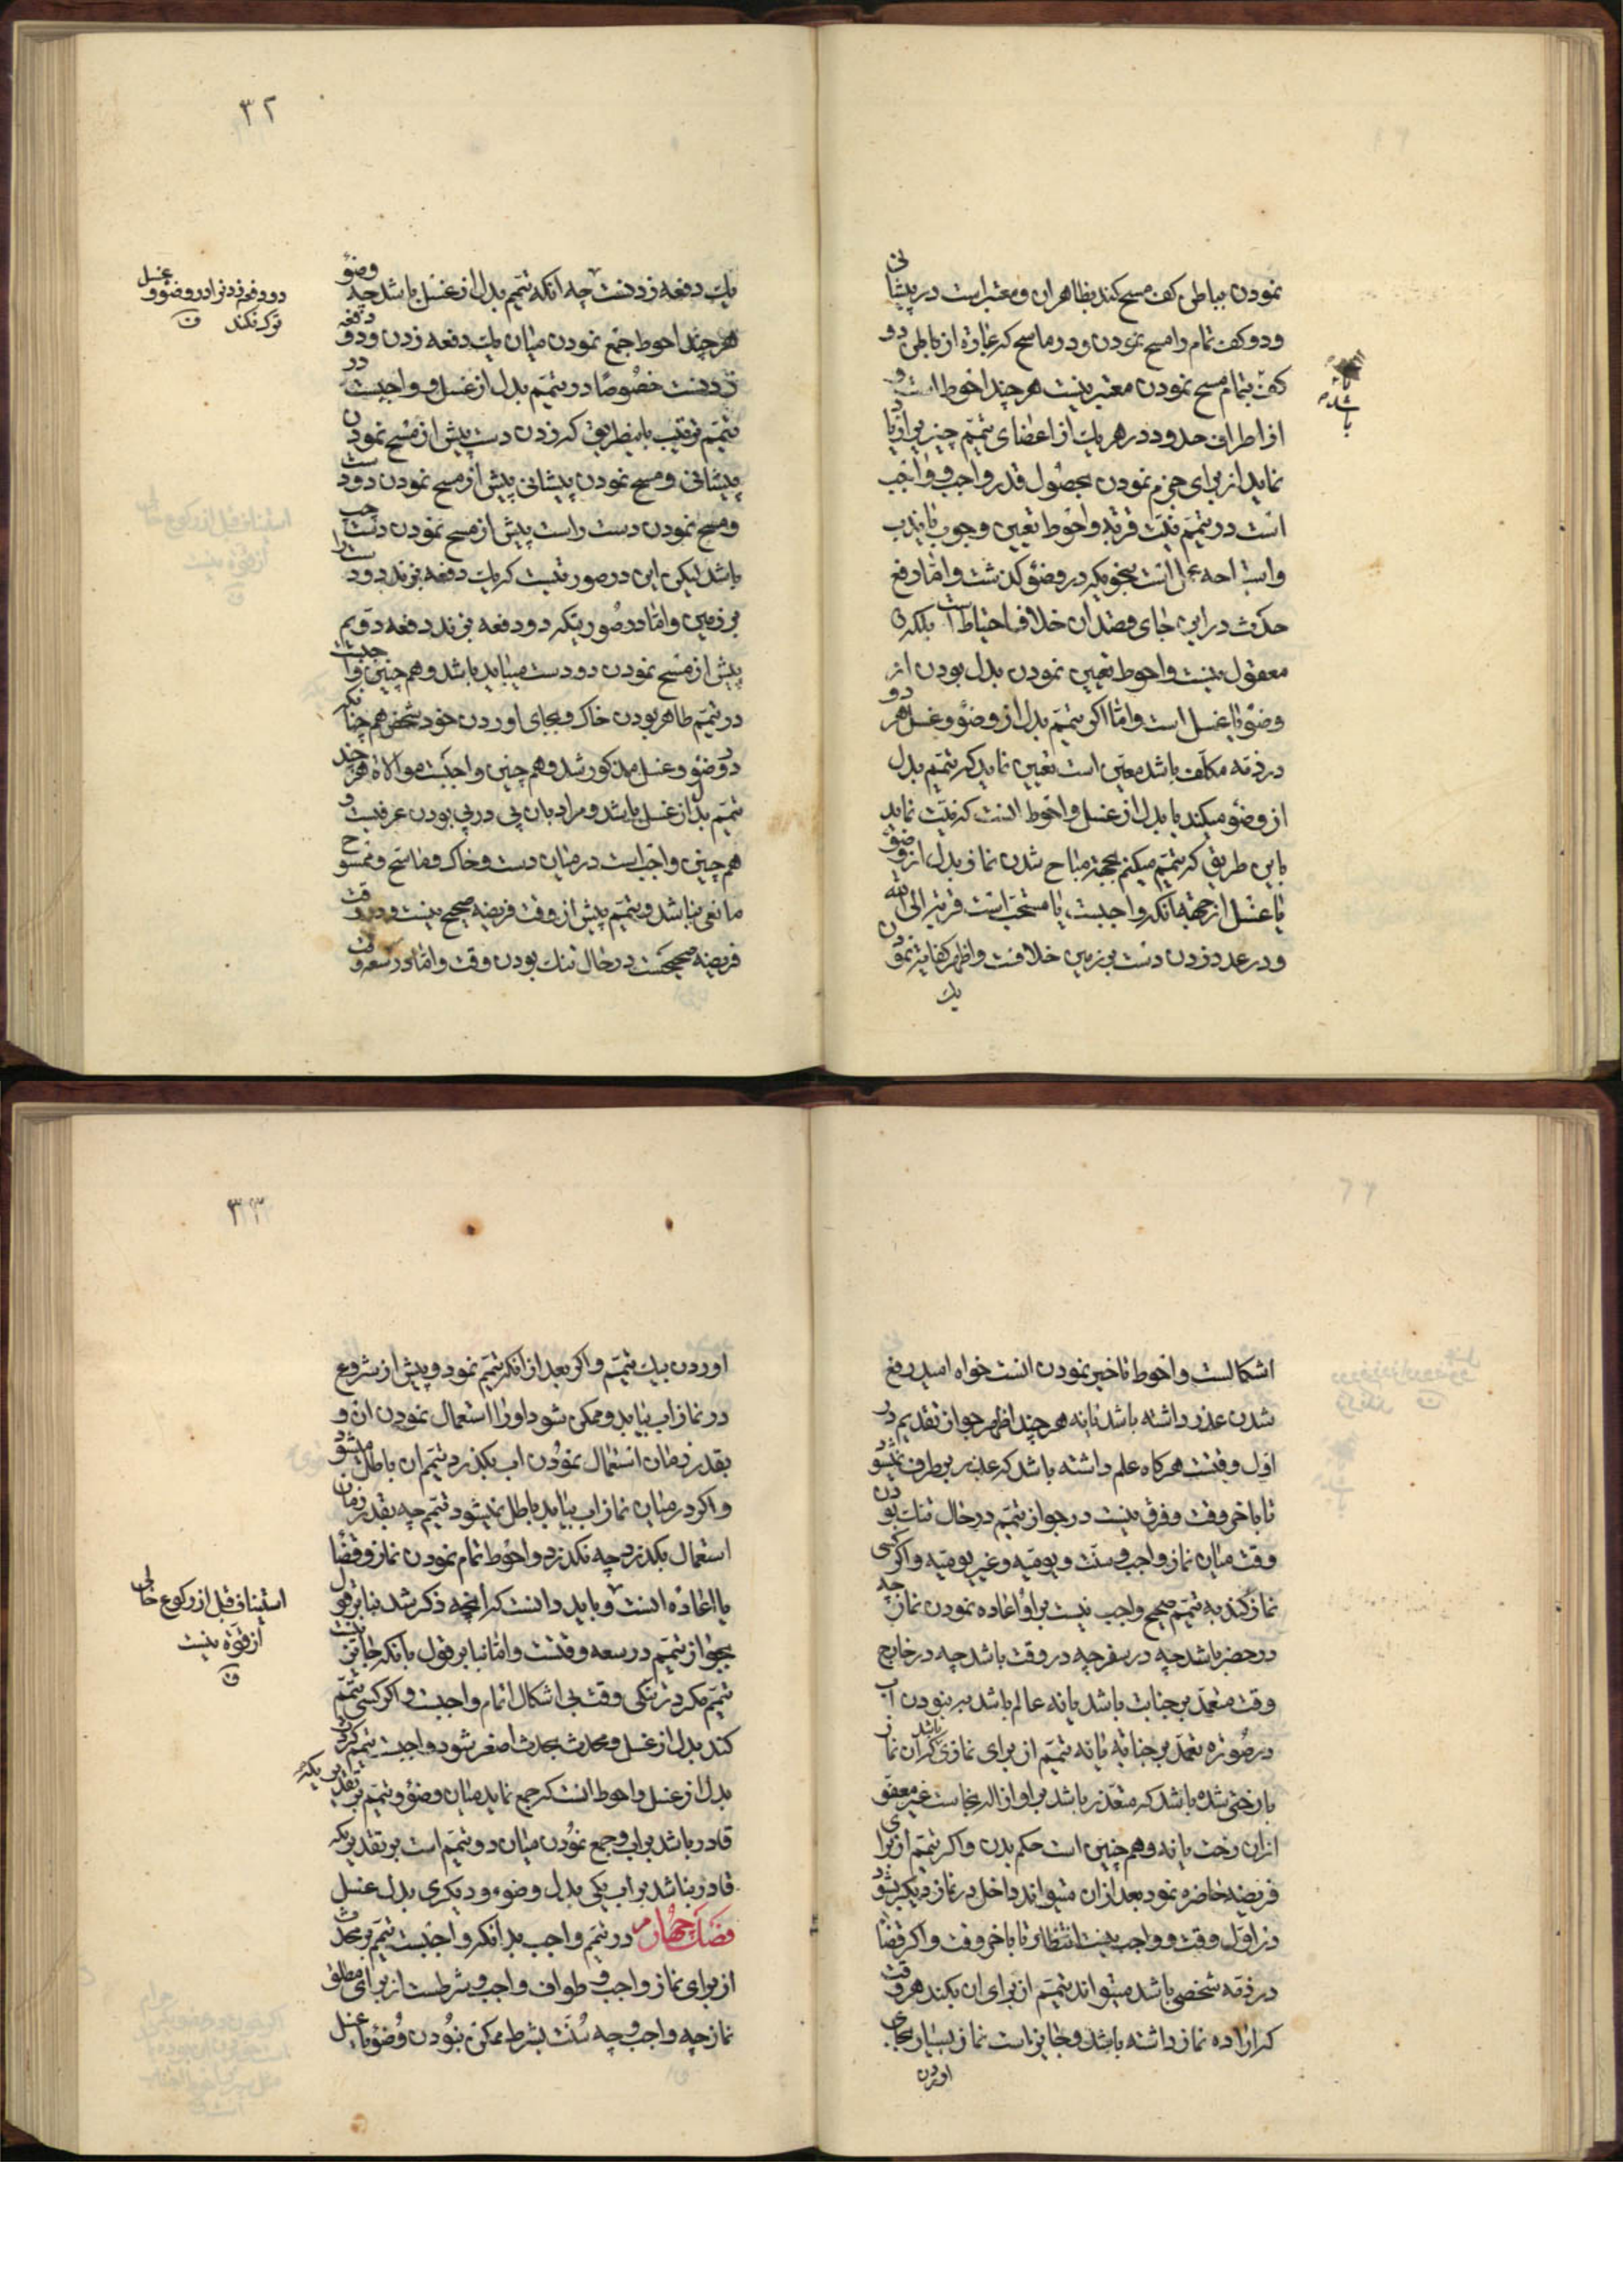 نمودن بباطن کف مسح کند بظاهر ان و معتبر است در پیشانی
و دو کف تمام را مسح نمودن و در ماسح که عبارة از باطن دو
کف بتمام مسح نمودن معتبر نیست هر چند احوط است و
از اطراف حدود در هر یك از اعضای تیمم چیزی زیاد
نماید از برای جزم نمودن بحصول قدر واجب و واجب
است در تیمم نیت قربة و احوط تعیین وجوب یا ندب
و استباحه عمل است بنحویکه در وضؤ کذشت و امّا رفع
حدث در این جای قصد ان خلاف احتیاط است بلکه
معقول نیست و احوط تعیین نمودن بدل بودن از
وضؤ یا غسل است و امّا اکر تیمم بدل از وضؤ و غسل هر دو
در ذمّه مکلّف باشد معیّن است تعیین نماید که تیمم بدل
از وضؤ میکند یا بدل از غسل و احوط انست که نیّت نماید
باین طریق که تیمّم میکنم بجهة مباح شدن نماز بدل از وضؤ
یا غسل از جهة انکه واجبست یا مستحبّ است قربة الی الله
و در عدد زدن دست بر زمین خلافست و اظهر کفایة نمودن
یك
باشد
٣٢
یك دفعه زدنست چه انکه تیمّم بدل از غسل باشد چه وضؤ
هر چند احوط جمع نمودن میان یك دفعه زدن و دو دفعه
زدنست خصُوصًا در تیمّم بدل از غسل و واجبست در
تیمّم ترتیب باینطریق که زدن دست پیش از مسح نمودن
پیشانی و مسح نمودن پیشانی پیش از مسح نمودن دو دست
و مسح نمودن دست راست پیش از مسح نمودن دست چپ
باشد لیکن این در صورتیست که یك دفعه بزند دو دست را
بر زمین و امّا در صُورتیکه دو دفعه بزند دفعه دویّم
پیش از مسح نمودن دو دست میباید باشد و هم چنین واجبست
در تیمّم طاهر بودن خاك و بجای اوردن خود شخص هم چنانکه
در وضؤ و غسل مذکور شد و هم چنین واجبست موالاة هر چند
تیمّم بدل از غسل باشد و مراد بان پی در پی بودن عرفیست و
هم چنین واجب است در میان دست و خاك و ماسح و ممسوح
مانعی نباشد و تیمّم پیش از وقت فریضه صحیح نیست و در وقت
فریضه صحیحست در حال تنك بودن وقت و امّا در سعه وقت
دو دفعه زدنرا در وضؤ و غسل
ترك نکند
اشکالست و احوط تاخیر نمودن است خواه امید رفع
شدن عذر داشته باشد یا نه هر چند اظهر جواز تقدیم در
اوّل وقتست هرکاه علم داشته باشد که عذر بر طرف نمیشود
تا باخر وقت و فرق نیست در جواز تیمّم در حال تنك بودن
وقت میان نماز واجب و سنّت و یومیّه و غیر یومیّه و اکر کسی
نماز کند به تیمّم صحیح واجب نیست بر او اعاده نمودن نماز چه
در حضر باشد چه در سفر چه در وقت باشد چه در خارج
وقت متعمّد بر جنابت باشد یا نه عالم باشد بر نبودن اب
در صُورة تعمّد بر جنابة یا نه تیمّم از برای نمازی باشد که ان نماز
با رختی شده باشد که متعذّر باشد بر او ازاله نجاست غیر معفو
از ان رخت یا نه و هم چنین است حکم بدن و اکر تیمّم از برای
فریضه حاضره نمود بعد از ان میتواند داخل در نماز دیکر شود
در اوّل وقت و واجب نیست انتظار تا باخر وقت و اکر قضا
در ذمّه شخصی باشد میتواند تیمّم از برای ان بکند هر وقت
که اراده نماز داشته باشد و جایز است نماز بسیار بجای
اوردن
٣٣
اوردن بیك تیمّم و اکر بعد از انکه تیمّم نمود و پیش از شروع
در نماز اب بیابد و ممکن شود او را استعمال نمودن ان و
بقدر زمان استعمال نمودن اب بکذرد تیمّم ان باطل میشود
و اکر در میان نماز اب بیابد باطل نمیشود تیمّم چه بقدر زمان
استعمال بکذرد چه نکذرد و احوط تمام نمودن نماز و قضا
یا اعاده است و باید دانست که انچه ذکر شد بنا بر قول
بجواز تیمّم در سعه وقتست و امّا بنا بر قول بانکه جایز نیست
تیمّم مکر در تنکی وقت بی اشکال اتمام واجبست و اکر کسی تیمّم
کند بدل از غسل و محدث بحدث اصغر شود واجبست تیمّم کردن
بدل از غسل و احوط انست که جمع نماید میان وضؤ و تیمّم بر تقدیریکه
قادر باشد بر اب و جمع نمودن میان دو تیمّم است بر تقدیریکه
قادر نباشد بر اب یکی بدل وضوء و دیکری بدل غسل
فصل چهارم در تیمّم واجب بدانکه واجبست تیمّم بر محدث
از برای نماز واجب و طواف واجب و شرطست از برای مطلق
نماز چه واجب و چه سُنّت بشرط ممکن نبُودن وُضؤ یا غسل
استیناف قبل از رکوع خالی
از قوّه نیست